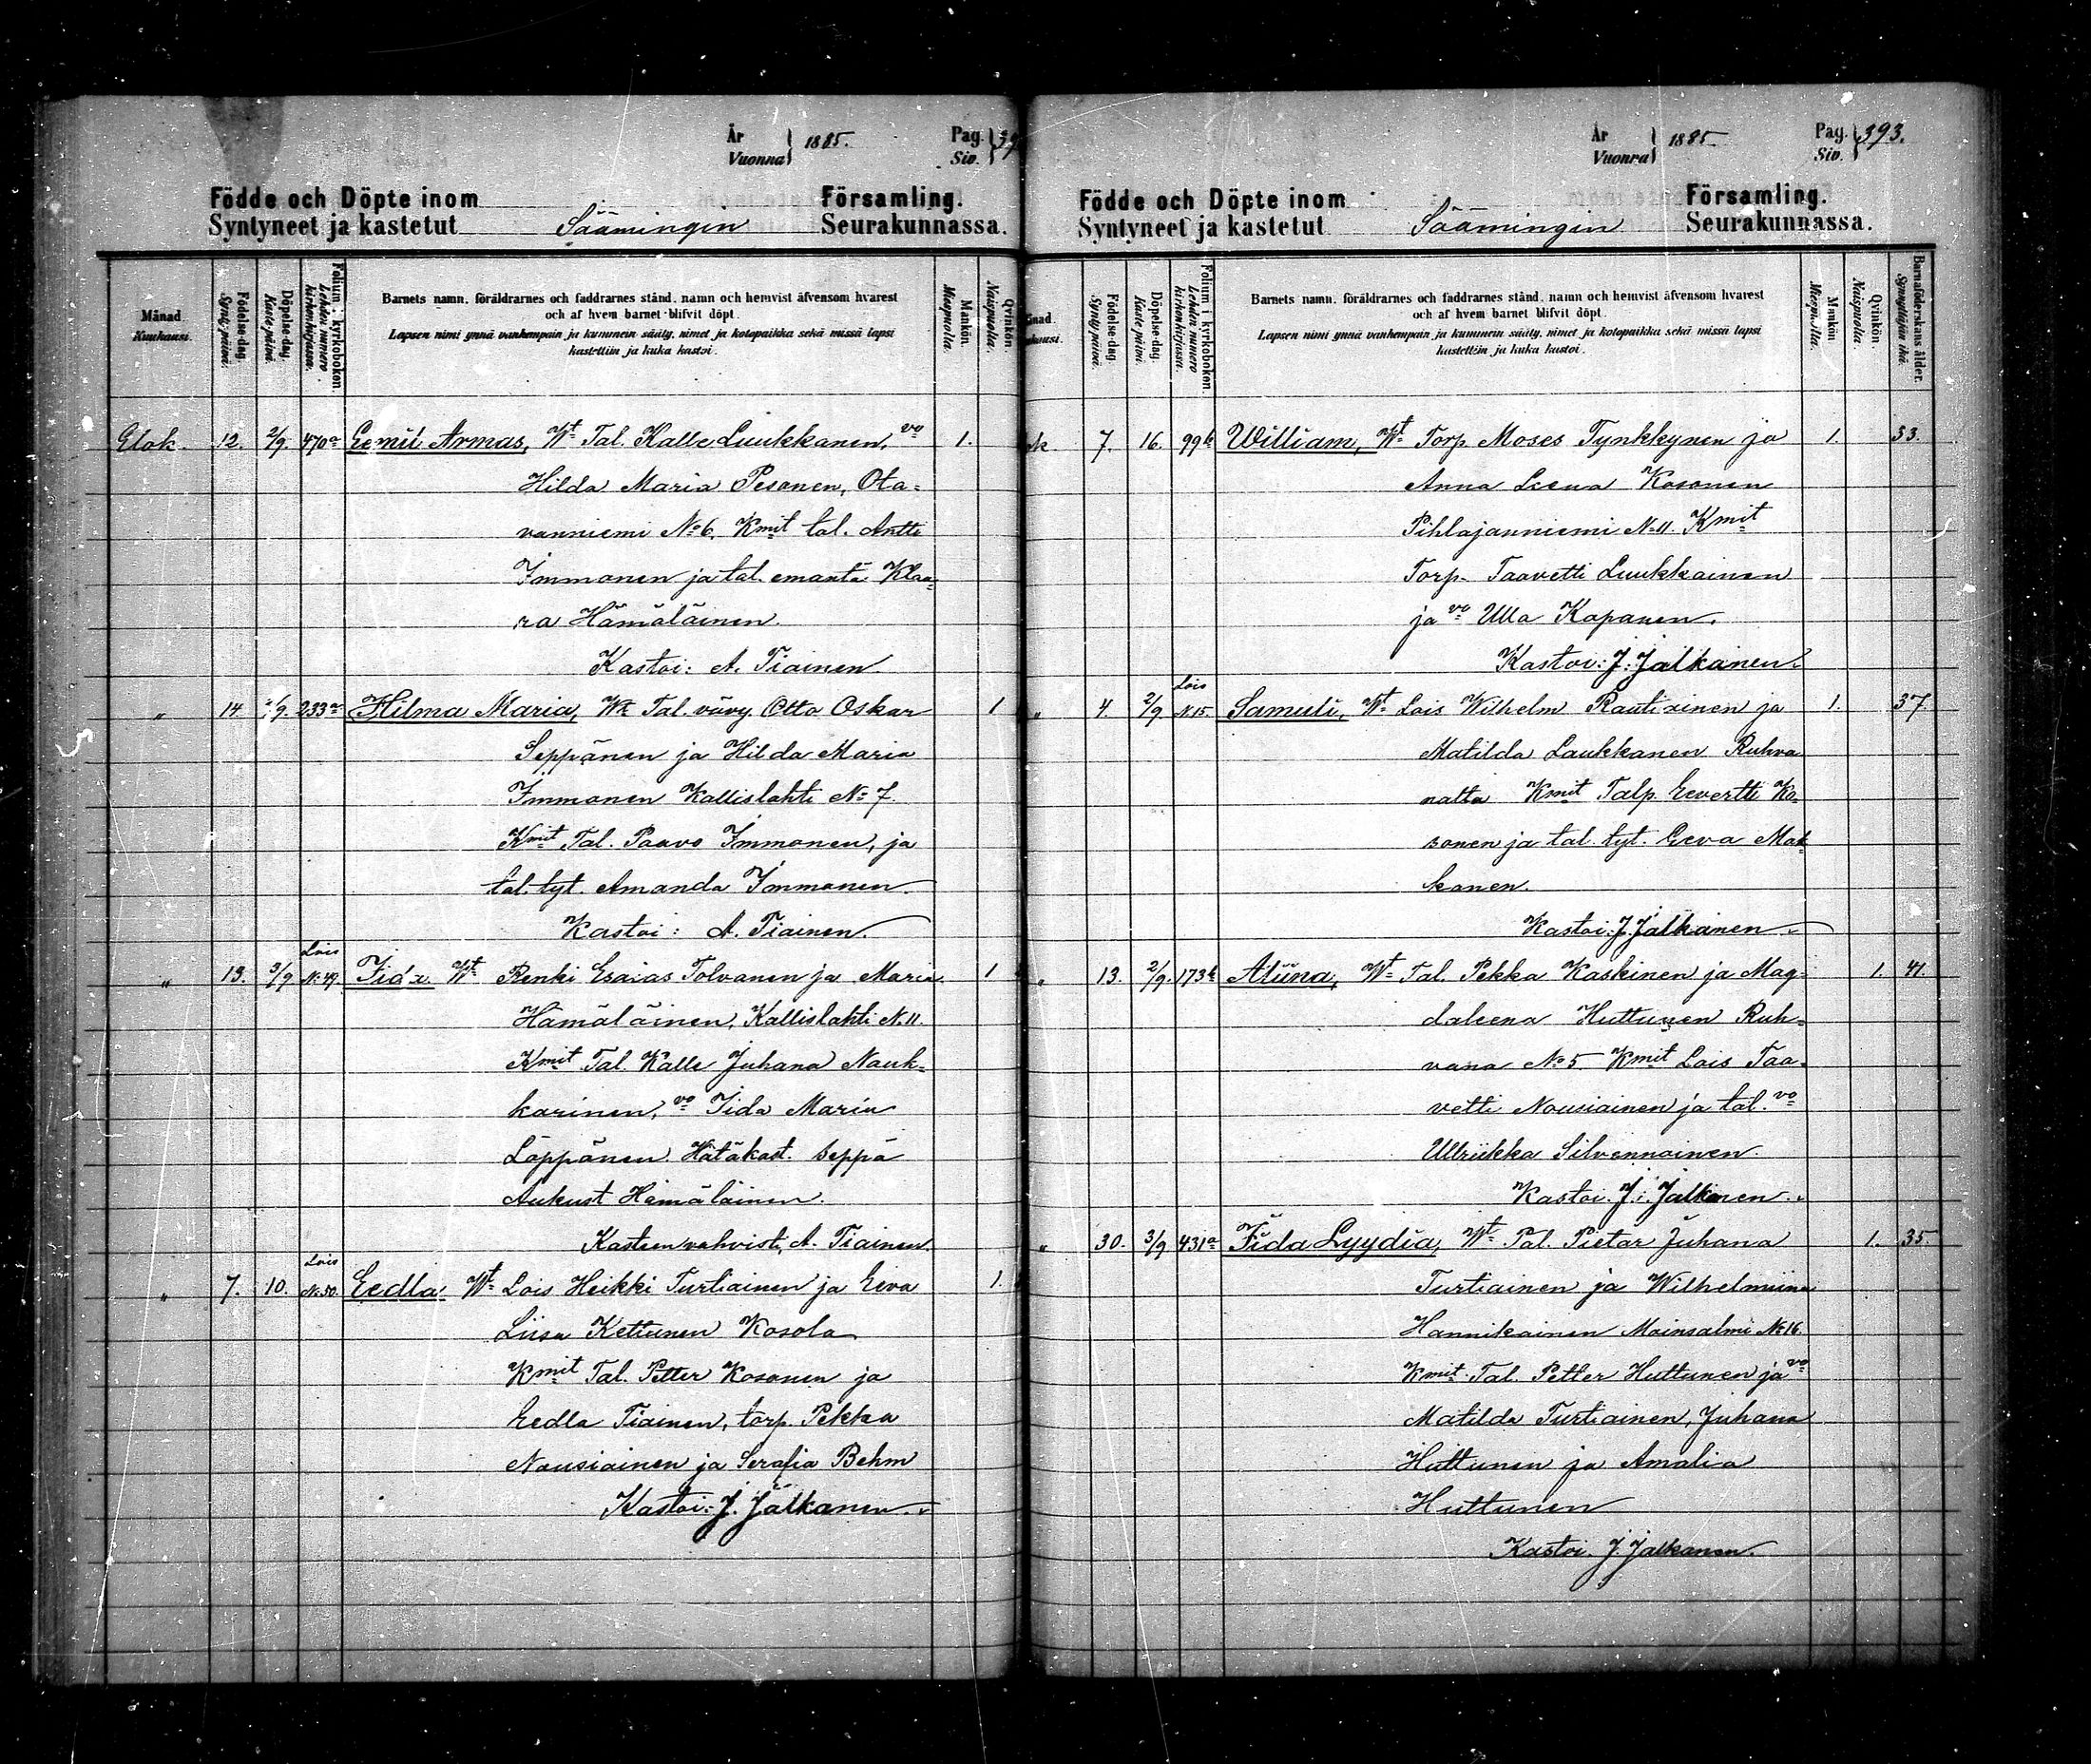 År
Vuonna } 1885.
Pag.
Siv. } 39
Födde och Döpte inom Församling.
Syntyneet ja kastetut Säämingin Seurakunnassa.
Månad
Kuukausi.
Födelse-dag.
Synty-päivä.
Döpelse-dag.
Kaste-päivä.
Folium i kyrkobokon.
Lehden numero kirkonkirjassa.
Barnets namn, föräldrarnes och faddrarnes stånd, namn och hemvist äfvensom hvarest
och af hvem barnet blifvit döpt.
Lapsen nimi ynnä vanhempain ja kummein sääty, nimet ja kotopaikka sekä missä lapsi
kastettiin ja kuka kastoi.
Mankön.
Miespuolia.
Qvinkön.
Naispuolia.
Elok. 12. 2/9. 470a Eemil Armas, Wt Tal. Kalle Luukkanen, vo 1.
Hilda Maria Pesonen, Ota-
vanniemi No 6. Kmit tal. Antti
Immonen ja tal. emäntä Klaa-
ra Hämäläinen.
Kastoi: A. Tiainen.
" 14 2/9. 233a Hilma Maria, Wt Tal. vävy Otto Oskar 1
Seppänen ja Hilda Maria
Immonen Kallislahti No 7.
Kmit Tal. Paavo Immonen, ja
tal. tyt. Amanda Immonen.
Kastoi: A. Tiainen.
Lois
" 13. 3/9 No 49. Iida. Wt Renki Esaias Tolvanen ja Maria 1
Hämäläinen, Kallislahti N. 11.
Kmit Tal. Kalle Juhana Nauk-
karinen, vo Iida Maria
Löppönen. Hätäkast. seppä
Aukust Hämäläinen.
Kasteen vahvist. A. Tiainen.
Lois
" 7. 10. No 50. Eedla Wt Lois Heikki Turtiainen ja Eeva 1.
Liisa Kettunen Kosola
Kmit Tal. Petter Kosonen ja
Eedla Tiainen, torp. Pekka
Nousiainen ja Serafia Behm
Kastoi: J. Jalkanen.
År
Vuonna } 1885
Pag.
Siv. } 393.
Födde och Döpte inom Församling.
Syntyneet ja kastetut Säämingin Seurakunnassa.
Födelse-dag.
Synty-päivä.
Döpelse-dag.
Kaste-päivä.
Folium i kyrkobokon.
Lehden numero kirkonkirjassa.
Barnets namn, föräldrarnes och faddrarnes stånd, namn och hemvist äfvensom hvarest
och af hvem barnet blifvit döpt.
Lapsen nimi ynnä vanhempain ja kummein sääty, nimet ja kotopaikka sekä missä lapsi
kastettiin ja kuka kastoi.
Mankön
Qvinkön.
Naispuolia
Barnaföderskans ålder.
Synnyttäjän ikä.
7. 16. 99b William, Wt Torp Moses Tynkkynen ja 1. 33.
Anna Leena Kosonen
Pihlajanniemi No 11. Kmit
Torp. Taavetti Luukkainen
ja vo Ulla Kapanen.
Kastoi: J. Jalkanen.
Lois
" 4. 2/9 N 15. Samuli, Wt Lois Wilhelm Rautiainen ja 1. 37
Matilda Laukkanen Ruhva
nalta Kmit Talp. Eevertti Ko-
sonen ja tal. tyt. Eeva Mak-
konen.
Kastoi: J. Jalkanen
" 13. 2/9. 173b Aliina, Wt Tal. Pekka Kaskinen ja Mag- 1. 41.
daleena Huttunen Ruh-
vana No 5. Kmit Lois Taa-
vetti Nousiainen ja tal. vo
Ullriikka Silvennoinen.
Kastoi. J. Jalkanen.
" 30. 3/9 431a Iida Lyydia, Wt Tal. Pietar Juhana 1. 35.
Turtiainen ja Wilhelmiina
Hannikainen Moinsalmi No 16.
Kmit Tal. Petter Huttunen ja vo
Matilda Turtiainen, Juhana
Huttunen ja Amalia
Huttunen
Kastoi. J. Jalkanen.